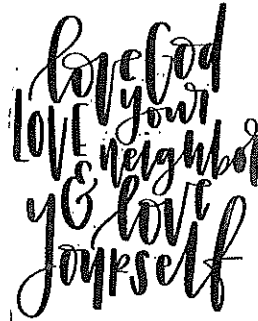 love God
LOVE your
neighbor
& love
yourself